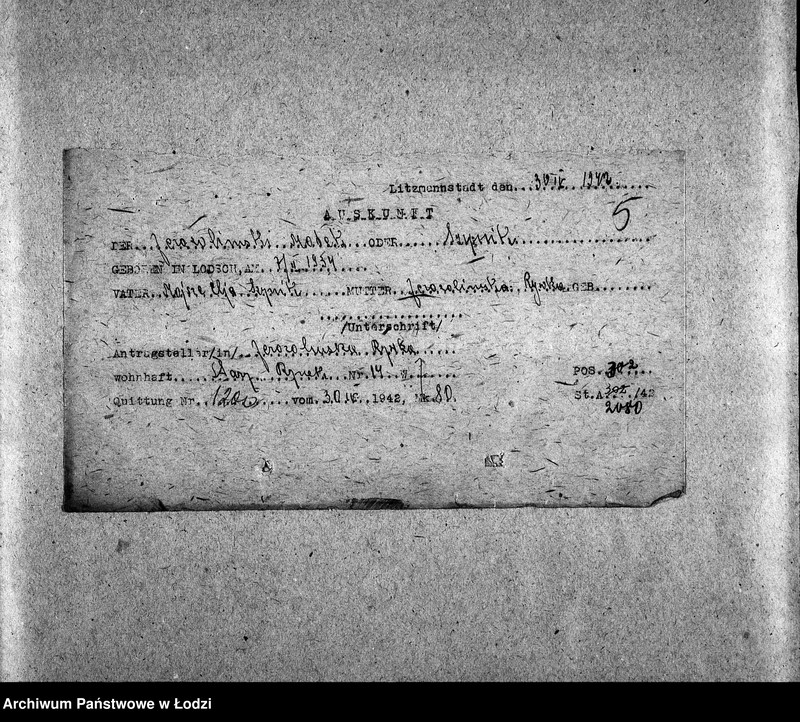 Litzmannstadt den...30 IV. 1942......
A U S K U N F T
5
DER...Jerozolimski Majtek...ODER......Szpnik..................
GEBOREN IN LODSCH, AM. 7/II 1934....
VATER..Majsze Elja Szpnik......MUTTER.Jerozolimska. Rywka.GEB........
/Unterschrift/
Antragsteller/in/..Jerozolimska Rywka.....
wohnhaft.....Rynek...Nr.14..W....
POS. 302....
Quittung Nr..120....vom.30.IV.,1942, Mk.80.
St.A.302../42
2080
Archiwum Państwowe w Łodzi